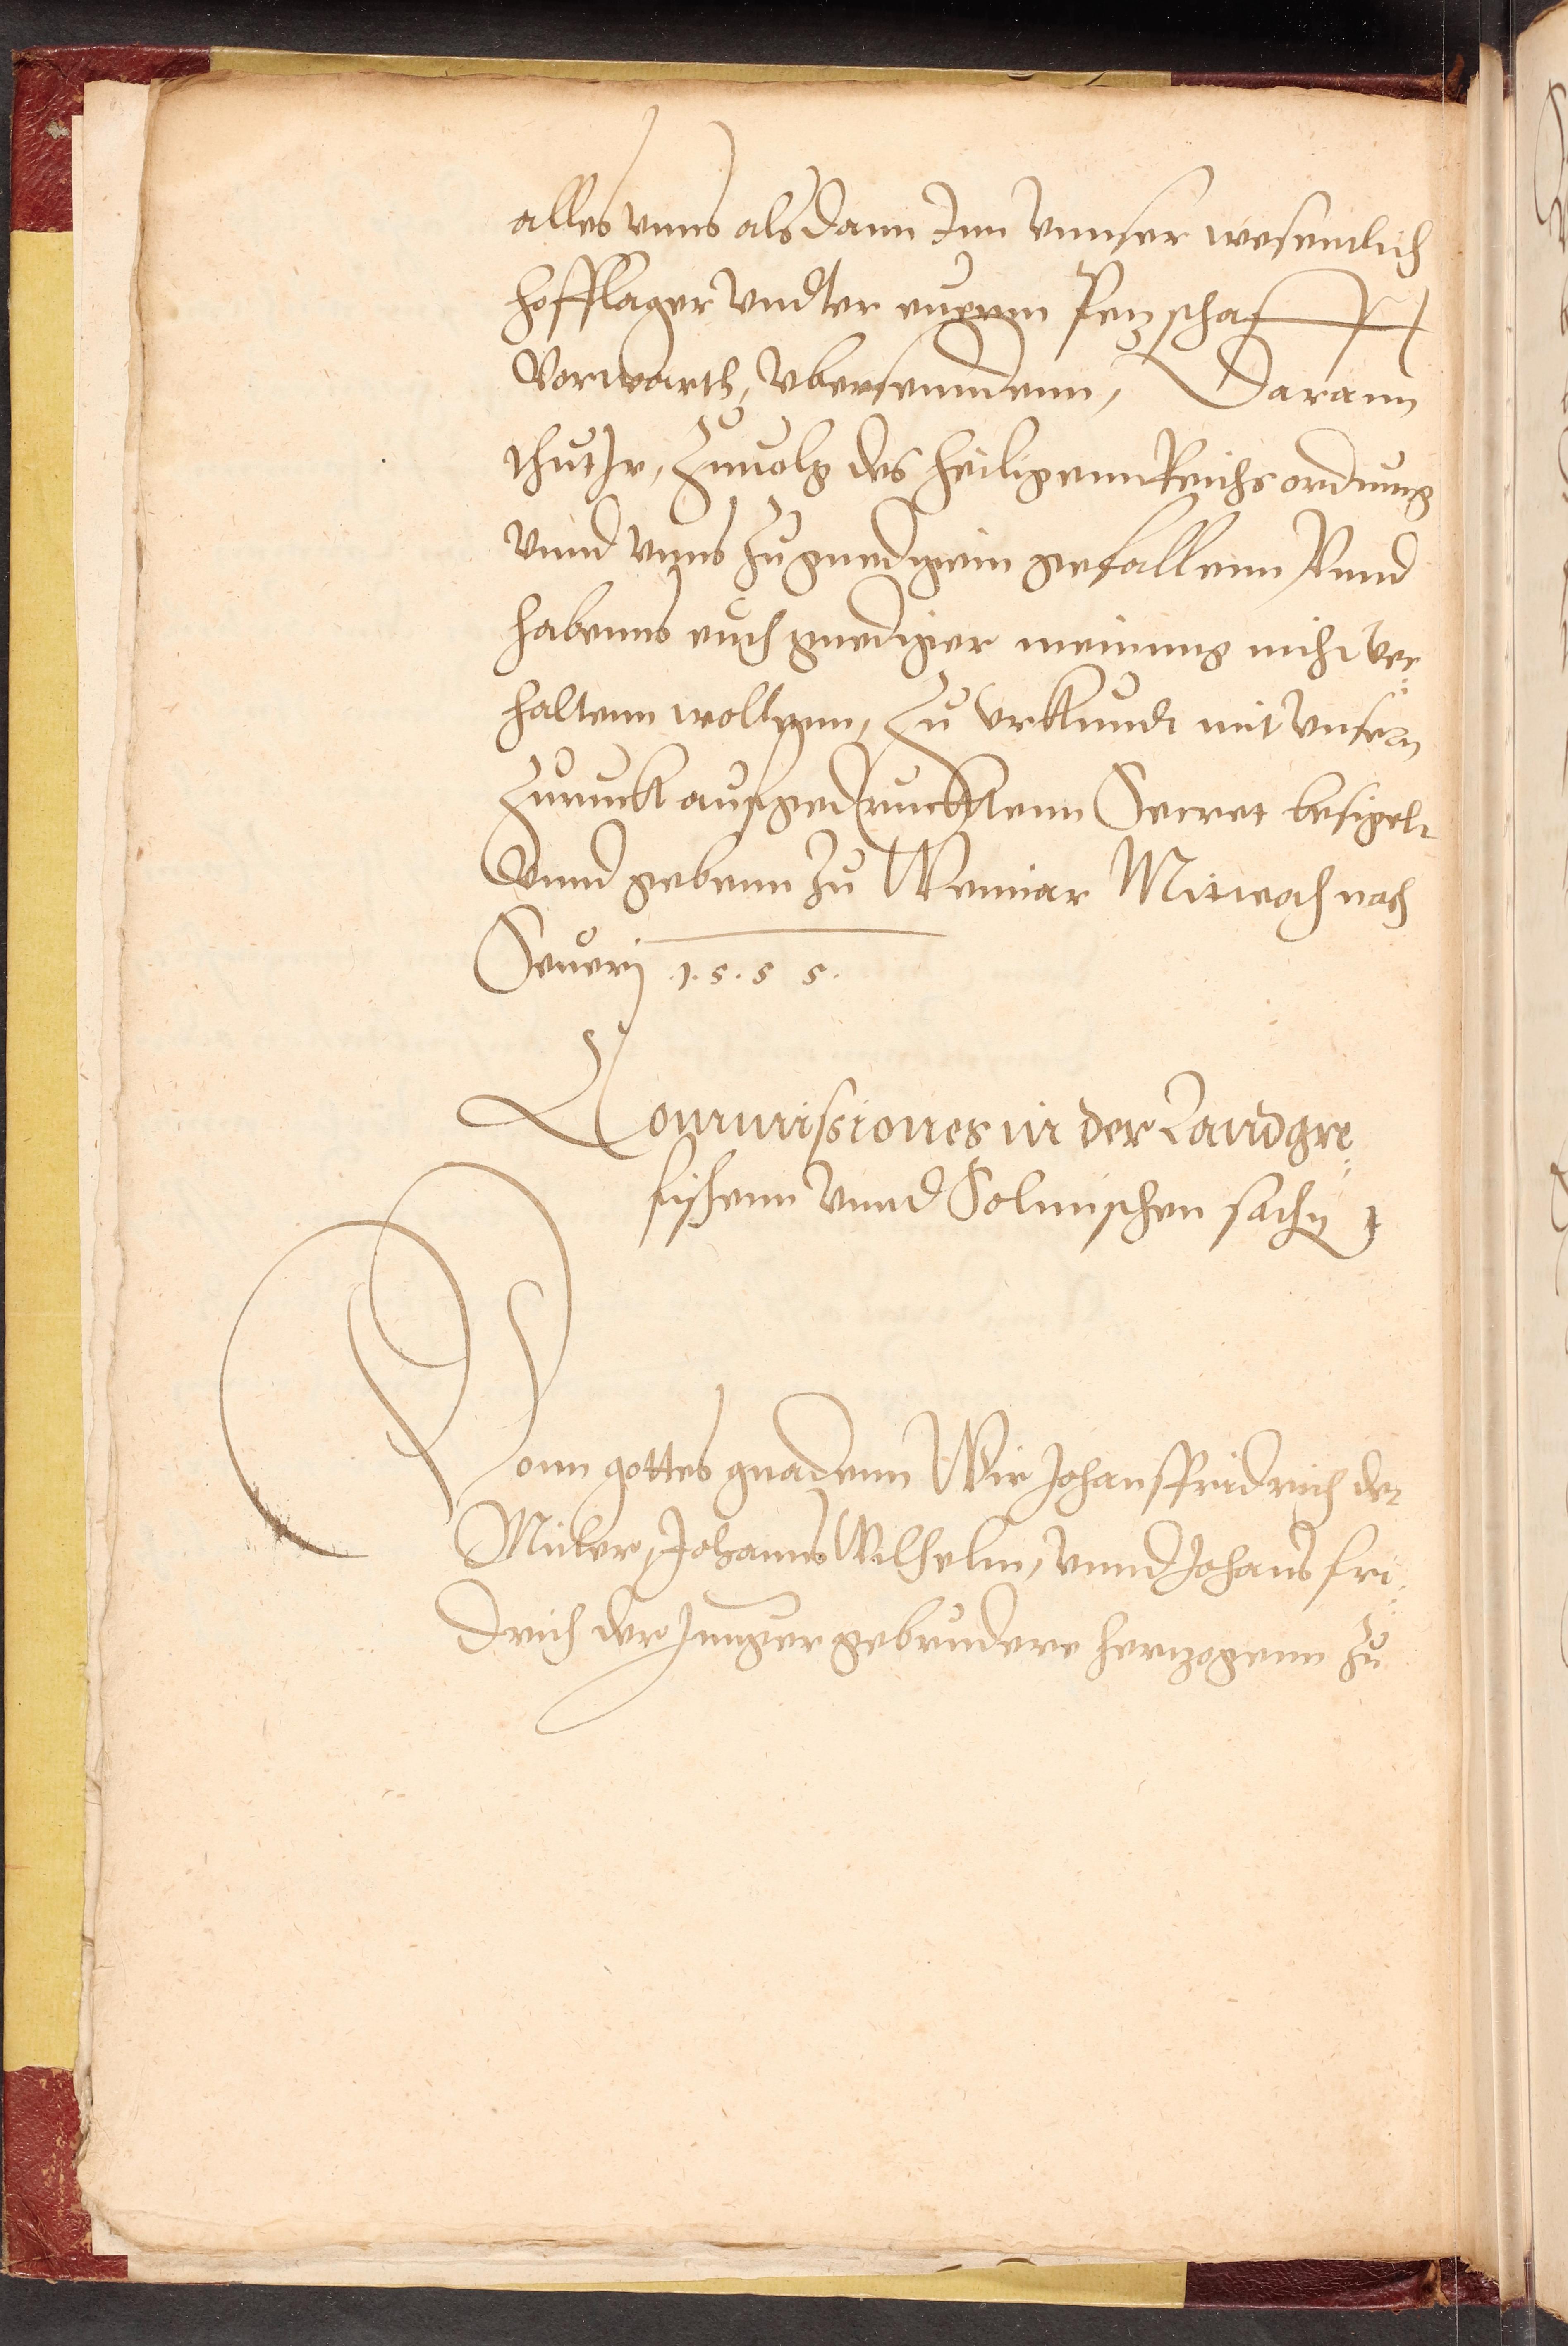 alles vnns alsdann Inn vnnser wesenntlich
hofflager vndter eurem Petzschafft
Vorwarth, vbersenndenn, Darann
thut Ir, Zuuolg des heiligenn Reichs ordnung
vnnd vnns zu gnedigem gefallenn, Vnnd
habenns euch gnediger meinung nicht ver„
haltenn wollenn, Zu Vrkundt mit vnserm
Zuruckt aufgedrucktenn Secret besigelt
Vnnd gebenn zu Weimar Mitwoch nach
Seuerj 1.5.5 5.
Commissiones in der Landgre„
fischenn vnnd Solmischen sachen
Vonn gottes gnadenn Wir Johansfridrich der
Mitler, Johanns Wilhelm, vnnd Johans fri„
drich der Junger gebrudere hertzogenn zu